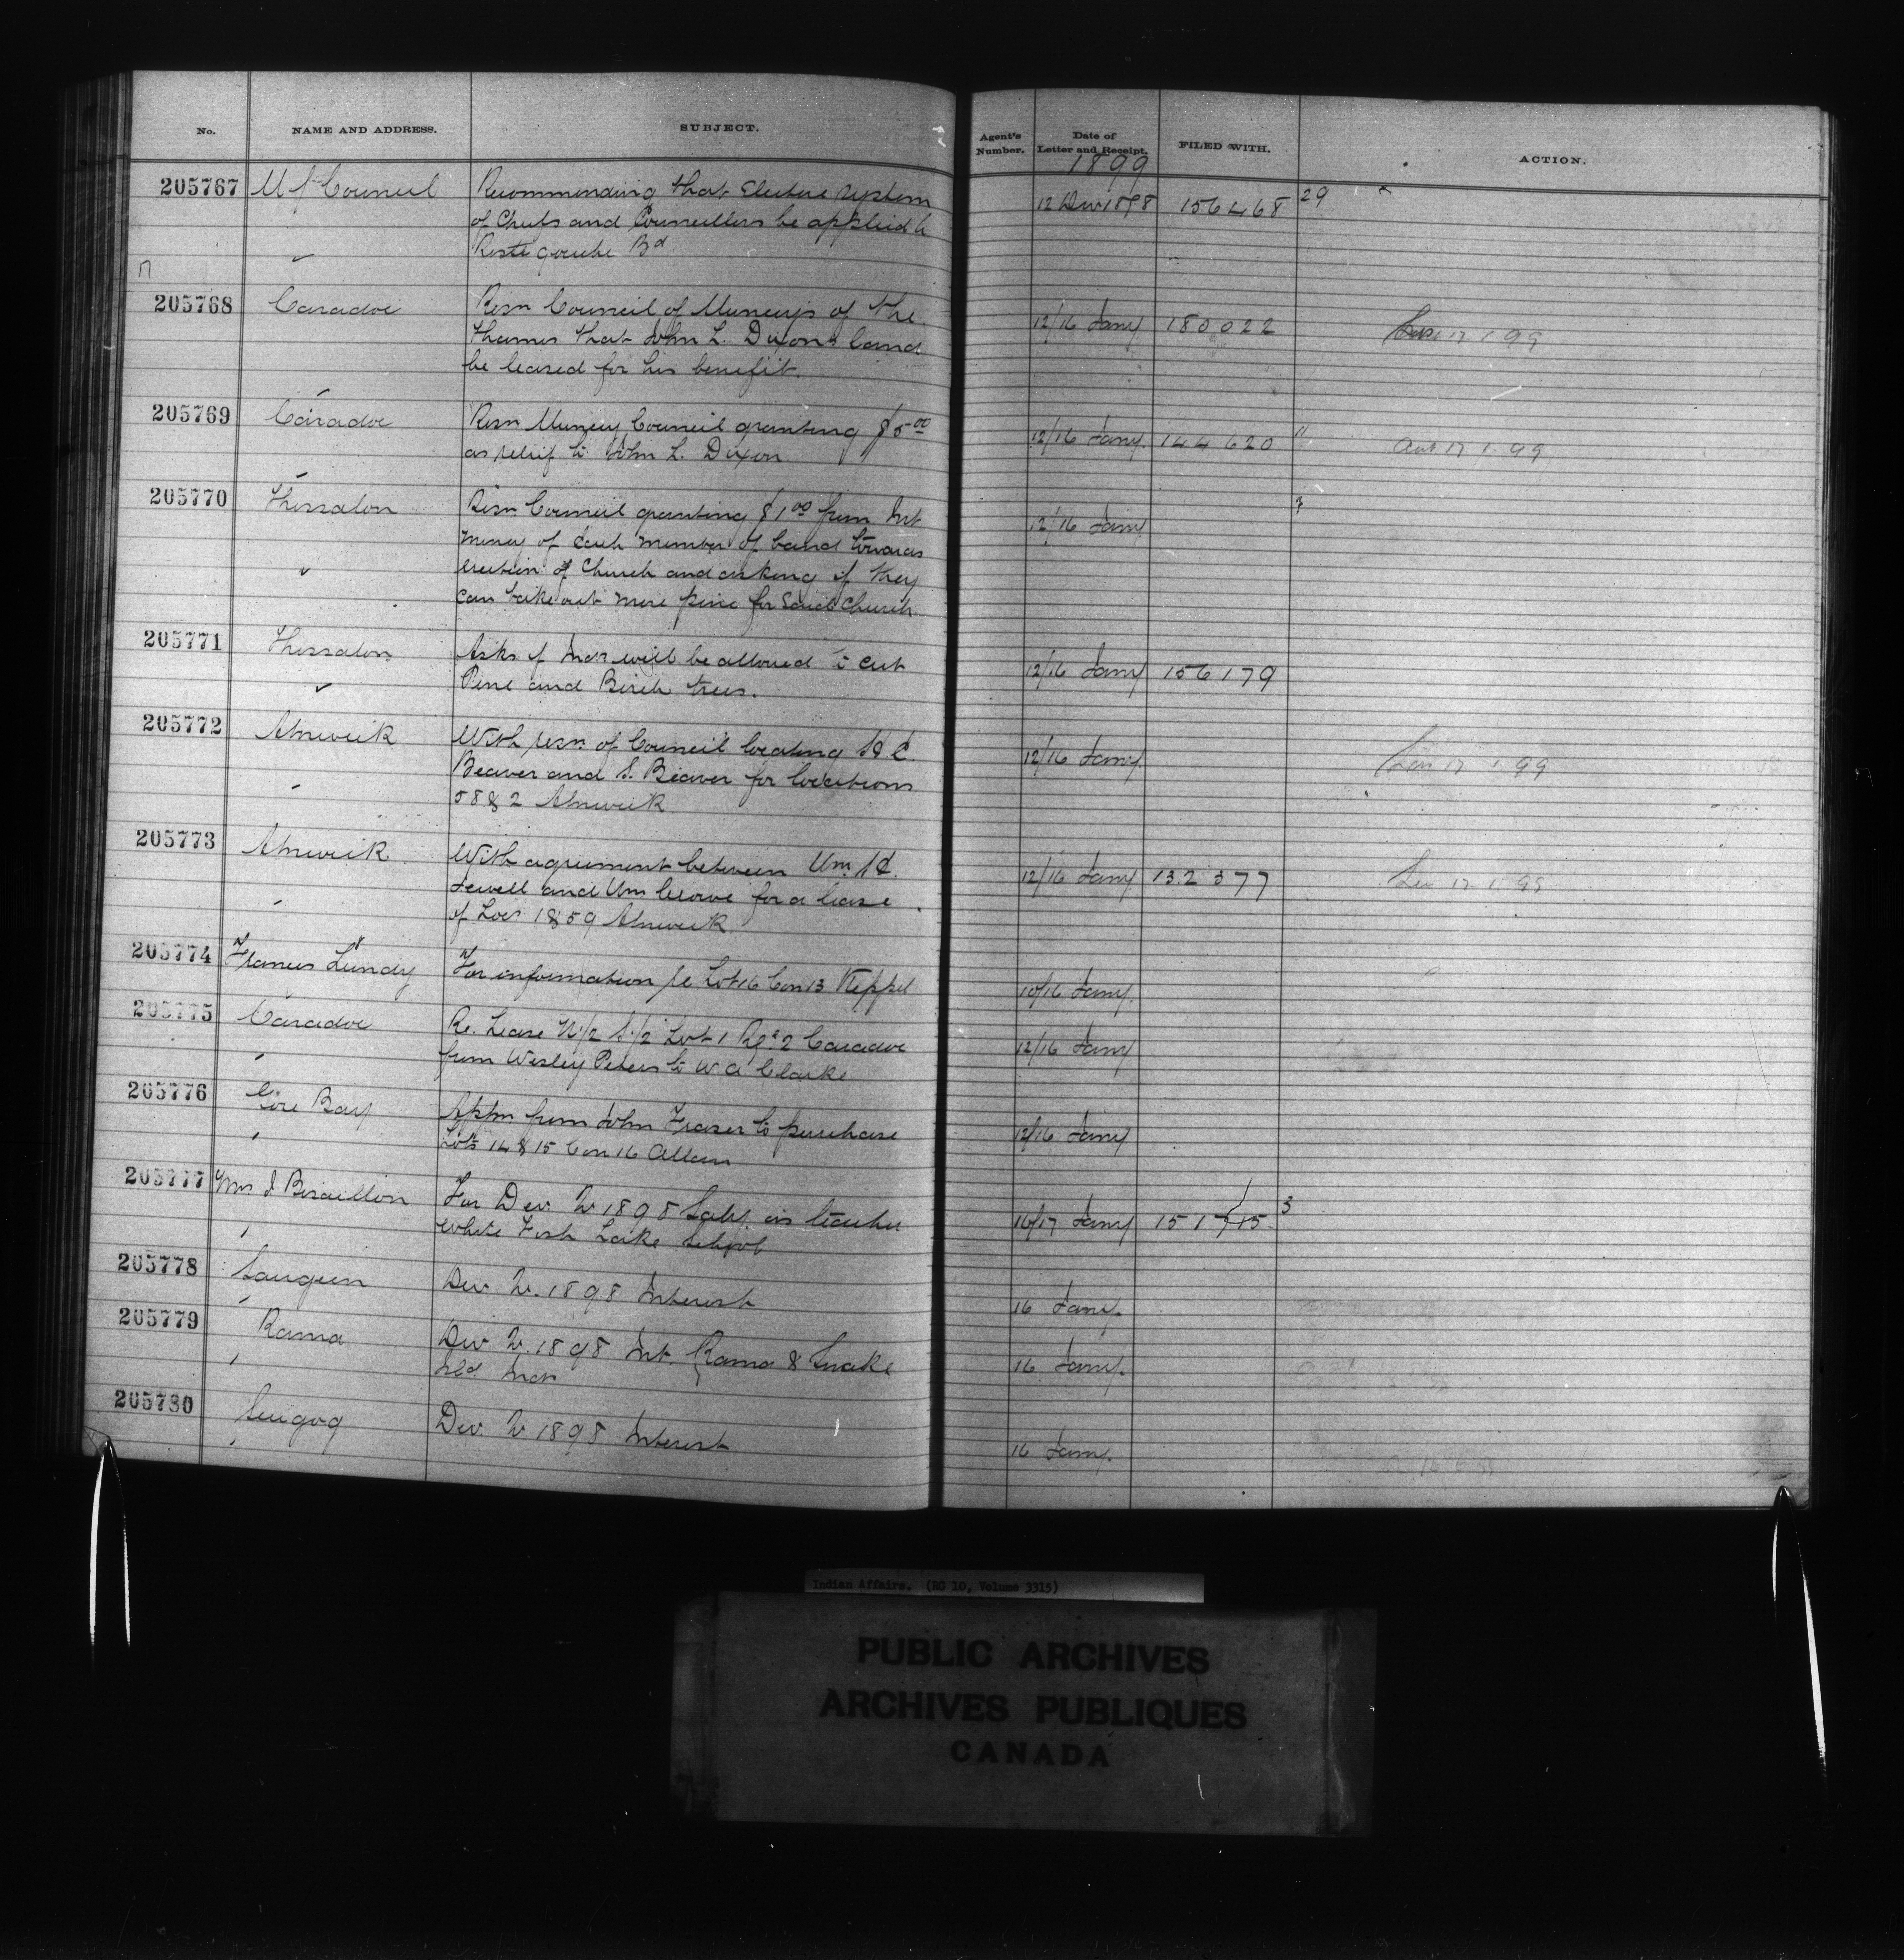 No. NAME AND ADDRESS. SUBJECT. Agent's Number. Date of Letter and Receipt. FILED WITH. ACTION.
1899
205767 Council Recommending that Elective system 12 Dec 1898 156468 29
of Chiefs and Councillors be applied to
Restigouche Bd
205768 Caradoc Resn Council of Munceys of the 12/16 Jany 180022 17 1 99
Thames that John L. Dixon's land
be leased for his benefit.
205769 Caradoc Resn Muncey Council granting $5.00 12/16 Jany. 144620 11 17 1 99
as relief to John L. Dixon
205770 Thessalon Resn Council granting $1.00 from Int 12/16 Jany 7
money of each member of band towards
erection of Church and asking if they
can take out more pine for said Church
205771 Thessalon Asks if Inds will be allowed to cut 12/16 Jany 156179
Pine and Birch trees.
205772 Alnwick With resn. of Council locating 12/16 Jany. 17 1 99
Beaver and S. Beaver for locations
58 & 2 Alnwick
205773 Alnwick With agreement between Wm. 12/16 Jany 132377 17 1 99
Sewell and Wm Crowe for a lease
of Locs 1 & 59 Alnwick
205774 Francis Lundy For information re Lot 16 Con 13 Keppel 10/16 Jany.
205775 Caradoc Re. Lease N/2 S/2 Lot 1 Rge 2 Caradoc 12/16 Jany
from Wesley Peters to W A Clarke
205776 Gore Bay Appn from John Fraser to purchase 12/16 Jany
Lots 14 & 15 Con 16 Allan
205777 For Dec. Qr 1898 Saly. as teacher 16/17 Jany 151715 3
White Fish Lake School
205778 Saugeen Dec. Qr. 1898 Interest 16 Jany.
205779 Rama Dec Qr. 1898 Int. Rama & Snake 16 Jany.
Isld. Inds
205780 Scugog Dec. Qr 1898 Interest 16 Jany.
Indian Affairs. (RG 10, Volume 3315)
PUBLIC ARCHIVES
ARCHIVES PUBLIQUES
CANADA